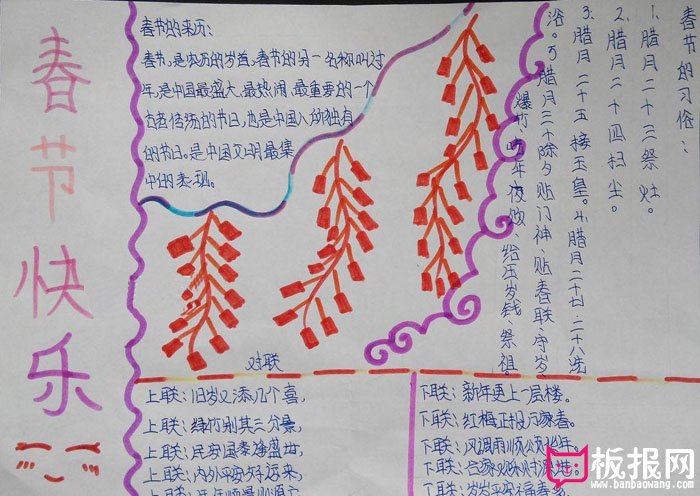 春节快乐
春节的来历：
春节，是农历的岁首，春节的另一名称叫过
年，是中国最盛大、最热闹、最重要的一个
古老传统的节日，也是中国人所独有
的节日。是中国文明最集
中的表现。
春节的习俗：
1. 腊月二十三祭灶。
2. 腊月二十四扫尘。
3. 腊月二十五接玉皇。4. 腊月二十七、二十八洗
浴。5. 腊月三十除夕贴门神、贴春联、守岁、
爆竹、吃年夜饭、给压岁钱、祭祖。
对联
上联：旧岁又添几个喜，
上联：绿竹别其三分景，
上联：民安国泰逢盛世，
上联：内外平安好运来，
上联：
下联：新年更上一层楼。
下联：红梅正报万家春。
下联：风调雨顺颂华年。
下联：合家欢乐财源进。
下联：岁岁平安福春
板报网
www.banbaowang.com